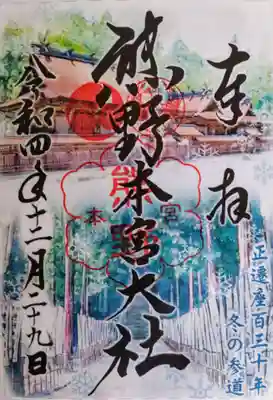 奉拝
熊野本宮大社
令和四年十二月二十九日
正遷座百三十年
冬の参道
本宮